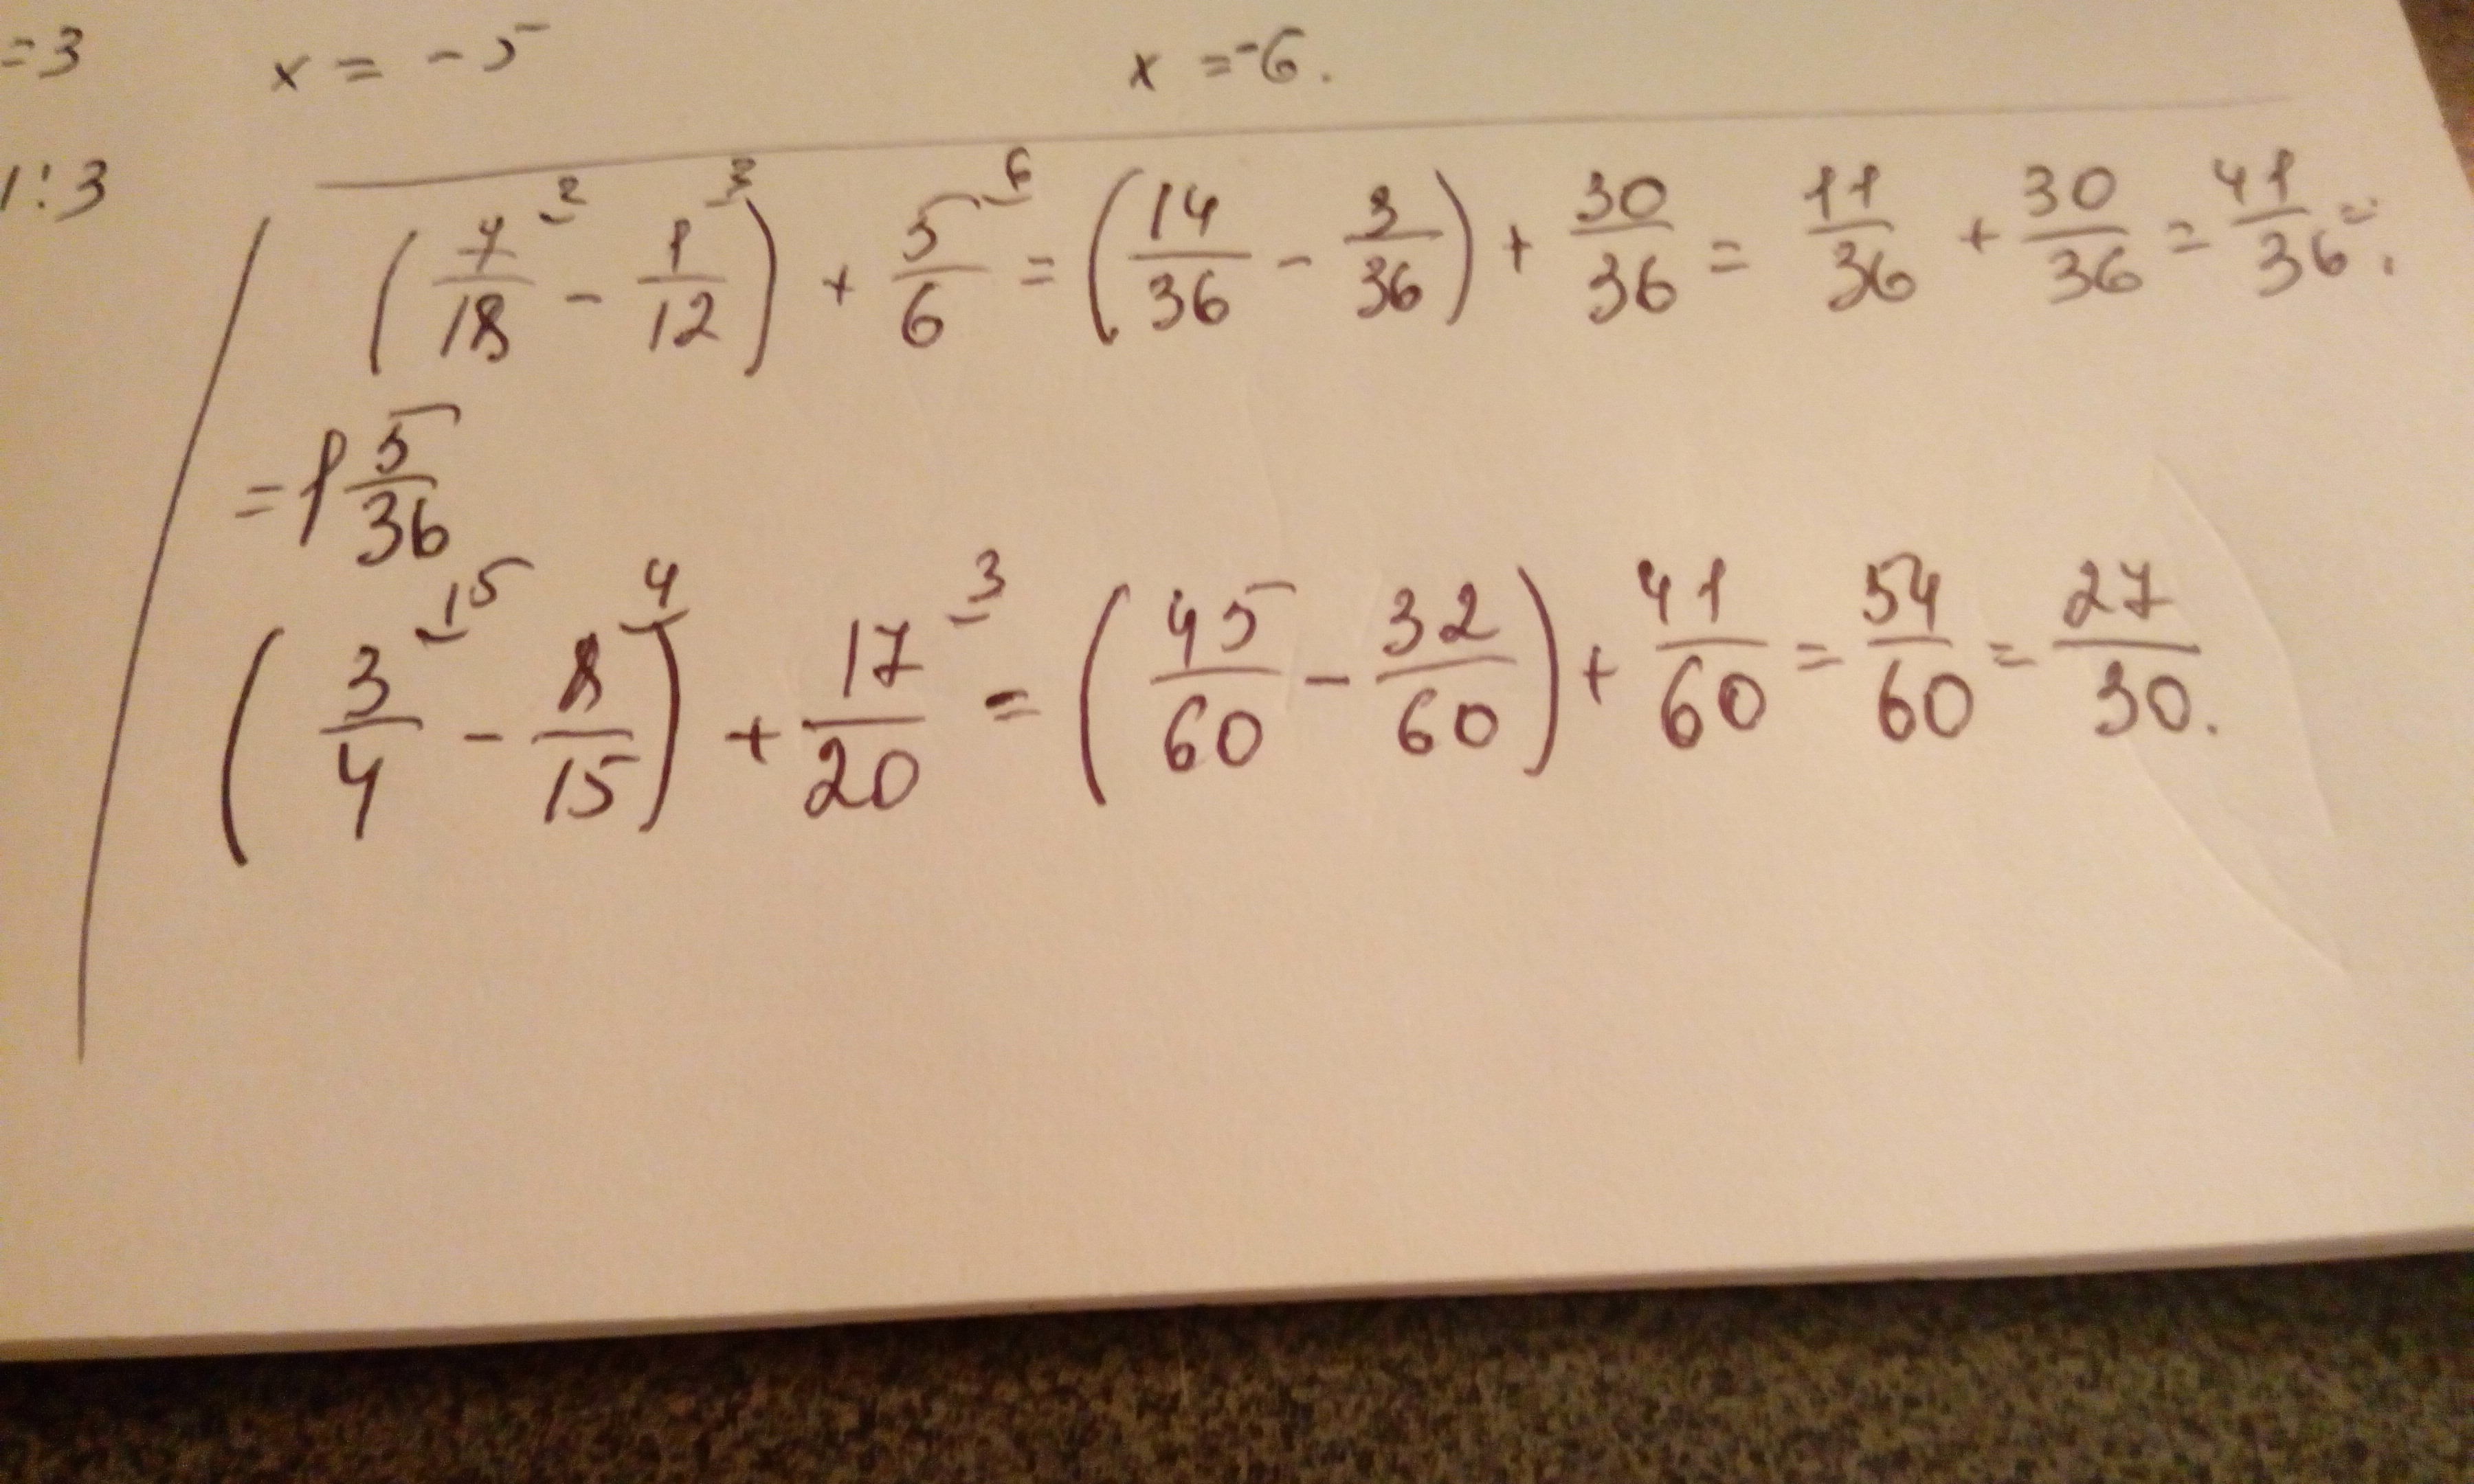 =3 x = -5 x = -6.
1:3
(7/18 ²- 1/12 ³) + 5/6 ⁶ = (14/36 - 3/36) + 30/36 = 11/36 + 30/36 = 41/36 =
= 1 5/36
(3/4 ¹⁵ - 8/15 ⁴) + 17/20 ³ = (45/60 - 32/60) + 41/60 = 54/60 = 27/30.